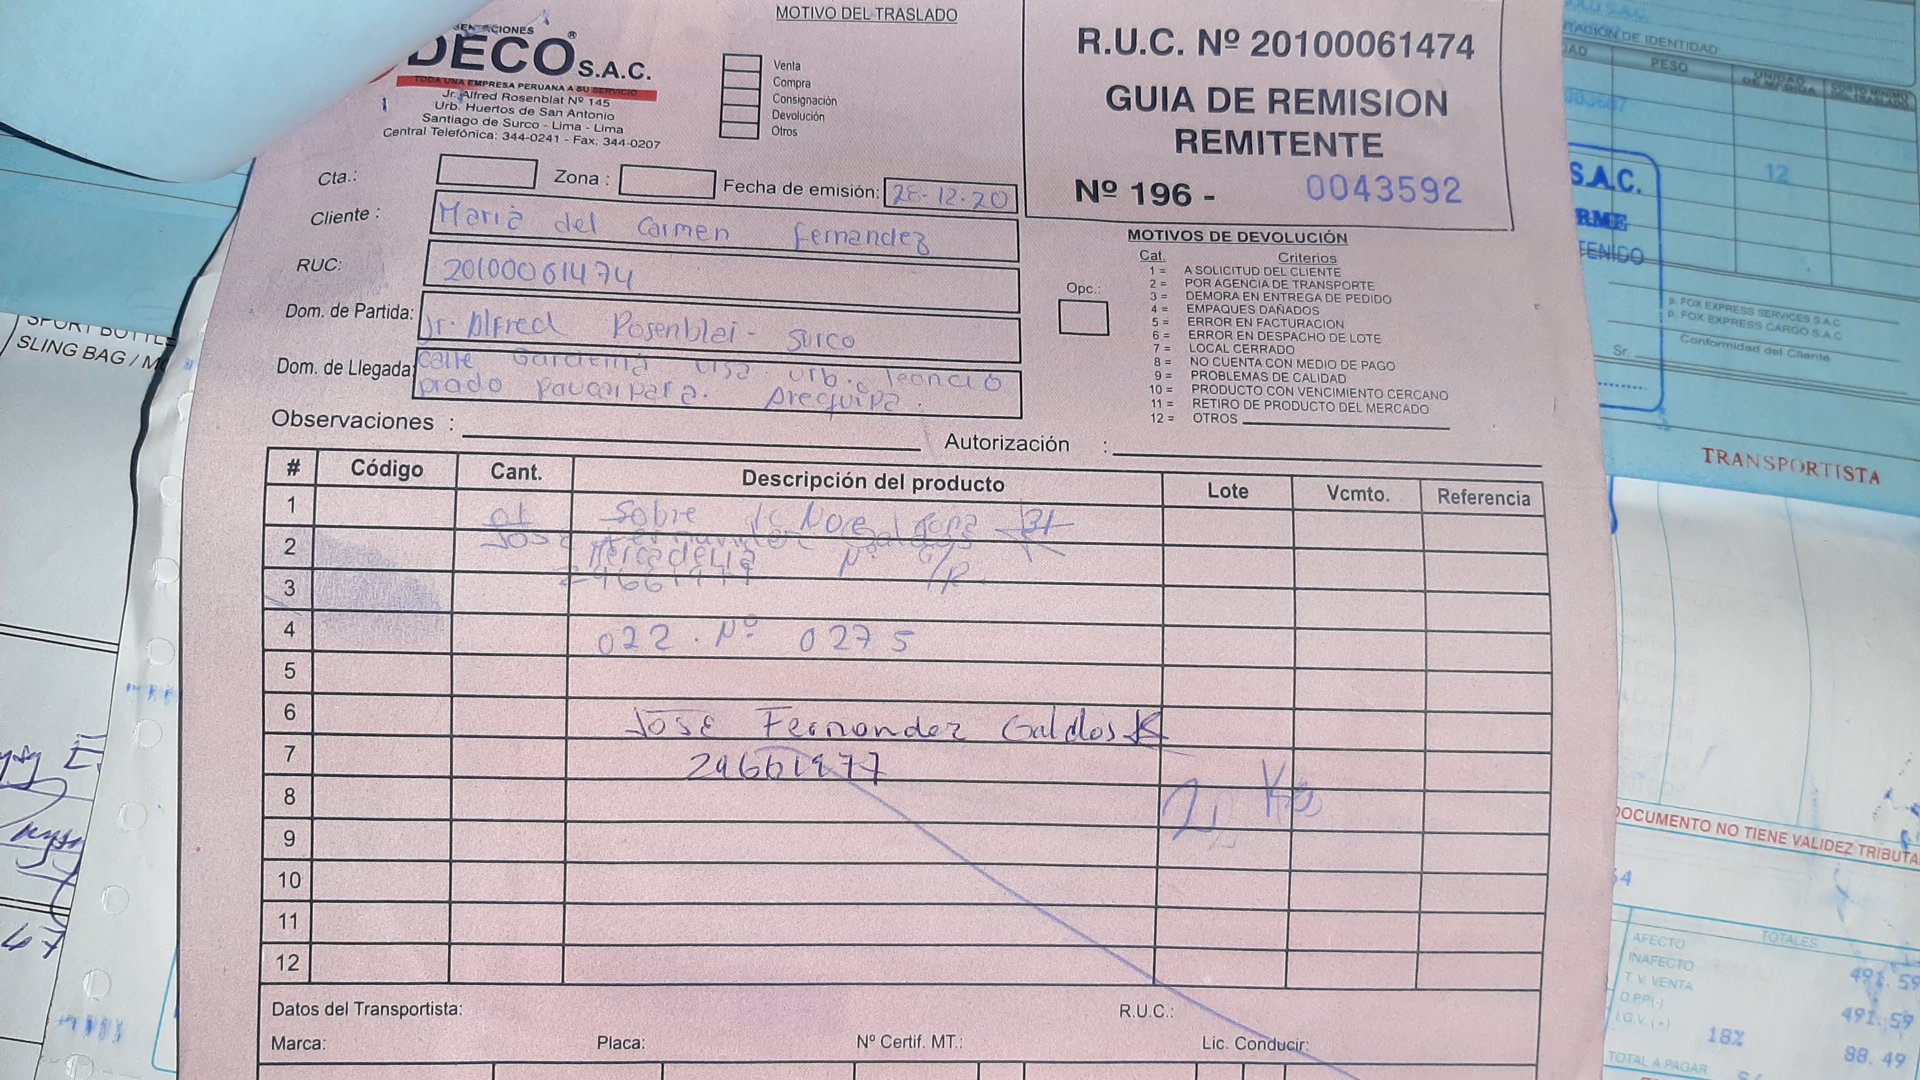 DECO® S.A.C.
TODA UNA EMPRESA PERUANA A SU SERVICIO
Jr. Alfred Rosenblat Nº 145
Urb. Huertos de San Antonio
Santiago de Surco - Lima - Lima
Central Telefónica: 344-0241 - Fax: 344-0207
MOTIVO DEL TRASLADO
Venta
Compra
Consignación
Devolución
Otros
R.U.C. Nº 20100061474
GUIA DE REMISION
REMITENTE
Nº 196 - 0043592
Cta.: Zona : Fecha de emisión: 28-12-20
Cliente : Maria del Carmen Fernandez
RUC: 20100061474
Dom. de Partida: Jr. Alfred Rosenblat - Surco
Dom. de Llegada: calle Gardenia urb. leoncio
prado paucarpara. Arequipa.
Observaciones : Autorización :
MOTIVOS DE DEVOLUCIÓN
Cat. Criterios
Opc.:
1 = A SOLICITUD DEL CLIENTE
2 = POR AGENCIA DE TRANSPORTE
3 = DEMORA EN ENTREGA DE PEDIDO
4 = EMPAQUES DAÑADOS
5 = ERROR EN FACTURACION
6 = ERROR EN DESPACHO DE LOTE
7 = LOCAL CERRADO
8 = NO CUENTA CON MEDIO DE PAGO
9 = PROBLEMAS DE CALIDAD
10 = PRODUCTO CON VENCIMIENTO CERCANO
11 = RETIRO DE PRODUCTO DEL MERCADO
12 = OTROS
# Código Cant. Descripción del producto Lote Vcmto. Referencia
1 01 Sobre de
2 Mercaderia Nº G/R
3
4 022. Nº 0275
5
6 José Fernandez Galdos
7 29661977
8
9
10
11
12
Datos del Transportista: R.U.C.:
Marca: Placa: Nº Certif. MT.: Lic. Conducir:
SPORT BOTTLE
SLING BAG /
PESO
UNIDAD
DE MEDIDA
12
S.A.C.
p. FOX EXPRESS SERVICES S.A.C
p. FOX EXPRESS CARGO S.A.C
Conformidad del Cliente
Sr.
TRANSPORTISTA
DOCUMENTO NO TIENE VALIDEZ TRIBUTA
TOTALES
AFECTO 491.59
INAFECTO
T. V. VENTA 491.59
D.P.P(-)
I.G.V. (+) 18% 88.49
TOTAL A PAGAR